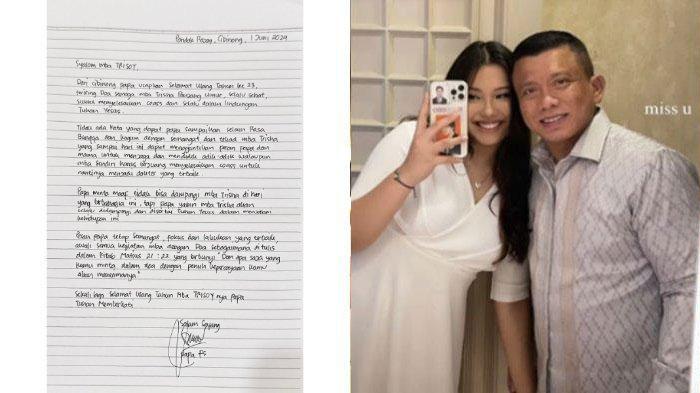 Pondok Rajeg, Cibinong, 1 Juni 2024
Syalom mba TRISOY,
Dari Cibinong papa ucapkan Selamat Ulang Tahun ke 23,
teriring Doa semoga mba Trisha Panjang Umur, selalu sehat,
sukses menyelesaikan coass dan selalu dalam lindungan
Tuhan Yesus.
Tidak ada kata yang dapat papa sampaikan selain Rasa
Bangga dan kagum dengan semangat dan tekad mba Trisha
yang sampai hari ini dapat menggantikan peran papa dan
mama untuk menjaga dan mendidik adik-adik walaupun
mba sendiri harus berjuang menyelesaikan coass untuk
nantinya menjadi dokter yang terbaik.
Papa minta maaf tidak bisa dampingi mba Trisha di hari
yang berbahagia ini, tapi papa yakin mba Trisha akan
selalu didampingi dan disertai Tuhan Yesus dalam
kehidupan ini
Pesan papa tetap semangat, fokus dan lakukan yang terbaik,
awali semua kegiatan mba dengan Doa sebagaimana ditulis
dalam Kitab Matius 21:22 yang bunyi "Dan apa saja yang
kamu minta dalam doa dengan penuh kepercayaan kamu
akan menerimanya"
Sekali lagi Selamat Ulang Tahun Mba TRISOY nya papa
Tuhan Memberkati
Salam Sayang
Papa FS
miss u